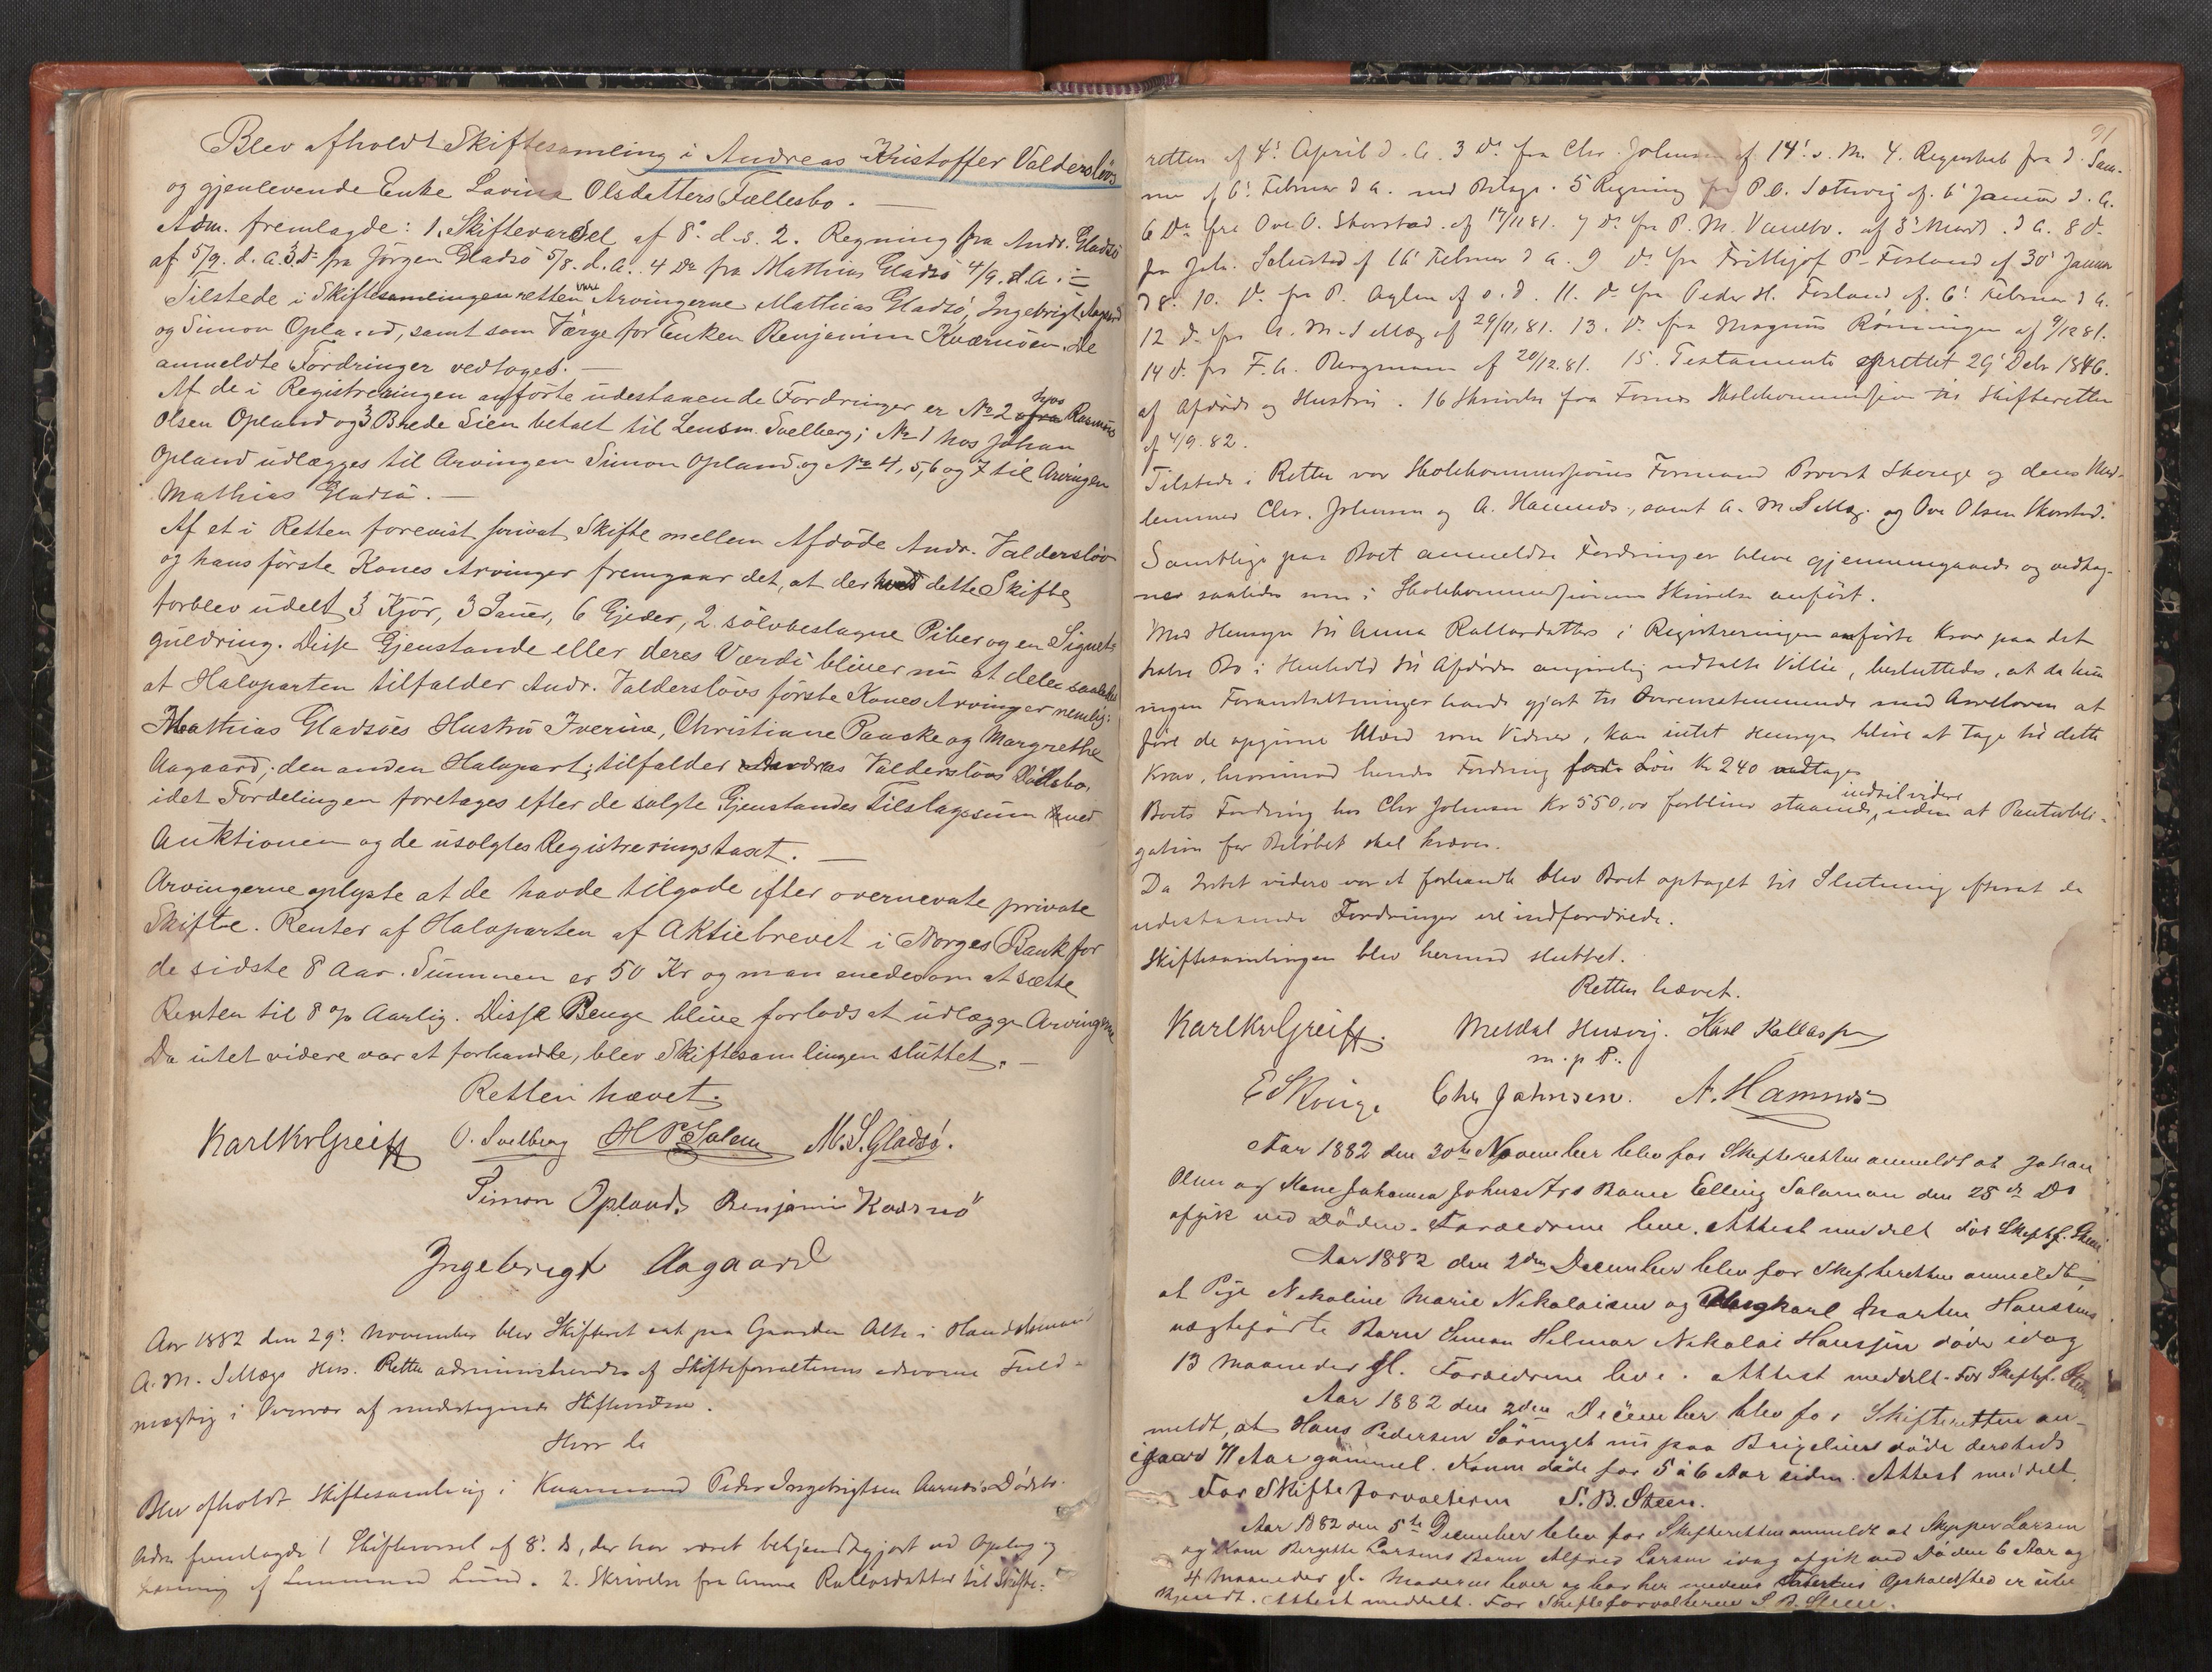 Blev afholdt Skiftesamling i Andreas Kristoffer Valderslövs
og gjenlevende Enke Lavina Olsdatters Fællesbo. —
Adm. fremlagde: 1. Skiftevarsel af 8de d.s. 2. Regning fra Andr. Gladsö
af 5/9. d.a. 3. Do fra Jörgen Gladsö 5/8. d.a. 4 Do fra Mathias Gladsö 4/9. d.a. :=
Tilstede i Skiftesamlingen retten vare Arvingerne Mathias Gladsö, Ingebrigt Aagaard
og Simon Opland, samt som Værge for Enken Benjamin Kværnöen. De
anmeldte Fordringer vedtoges. —
Af de i Registreringen anförte udestaaende Fordringer er No 2 hos Rasmus
Olsen Opland og 3 Brede Sien betalt til Lensm. Svelberg; No 1 hos Johan
Opland udlægges til Arvingen Simon Opland og No 4, 5, 6 og 7 til Arvingen
Mathias Gladsö. —
Af et i Retten forevist privat Skifte mellem Afdöde Andr. Valderslöv
og hans förste Kones Arvinger fremgaar det, at der ved dette Skifte
forblev udelt 3 Kjör, 3 Sauer, 6 Gjeder, 2 sölvbeslagne Piber og en Signet-
guldring. Disse Gjenstande eller deres Værdi bliver nu at dele saaledes
at Halvparten tilfalder Andr. Valderslövs förste Kones Arvinger nemlig:
Mathias Gladsöes Hustru Iverine, Christiane Paaske og Margrethe
Aagaard; den anden Halvpart tilfalder Andreas Valderslövs Dödsbo,
idet Fordelingen foretages efter de solgte Gjenstandes Tilslagssum ved
Auktionen og de usolgtes Registreringstaxt. —
Arvingerne oplyste at de havde tilgode efter overnevnte private
Skifte. Renter af Halvparten af Aktiebrevet i Norges Bank for
de sidste 8 Aar. Summen er 50 Kr og man enedes om at sætte
Renten til 8 % Aarlig. Disse Penge blive forlods at udlægge Arvingerne
Da intet videre var at forhandle, blev Skiftesamlingen sluttet. —
Retten hævet.
Karl Kr Greiff O. Svelberg H P Salem M. S. Gladsö.
Simon Opland. Benjamin Kværnö
Ingebrigt Aagaard
Aar 1882 den 29de November blev Skifteret sat paa Gaarden Alte i Handelsmand
A. M. Selläg Hus. Retten administreredes af Skifteforvalterens edsvorne Fuld-
mægtig i Overvær af undertegnede Skiftevidner.
Hvor da
Blev afholdt Skiftesamling i Kvammand Peder Ingebrigtsen Aarnes's Dödsbo.
Adm fremlagde 1 Skiftevarsel af 8de ds, der har været bekjendtgjort ved Opslag og
Læsning af Lensmand Lund. 2. Skrivelse fra Anna Rallosdatter til Skifte-
91
retten af 4de April d. A. 3 Do fra Chr. Johnsen af 14de s. M. 4. Regnskab fra d. Sam-
me af 6de Februar d A. med Bilage. 5 Regning fra P. O. Satervig af 6te Januar d. A.
6 Do fra Ove O. Skorstad af 17/11 81. 7 Do fra P. M. Vanebo. af 8de Marts d A. 8 Do
fra Joh. Selnstad af 16de Februar d A. 9 Do fra Frithjof P. Fosland af 30de Januar
d 8. 10. Do fra P. Aglen af s. d. 11. Do fra Peder H. Fosland af. 6te Februar d A.
12 Do fra A. M. Selläg af 29/11 81. 13. Do fra Magnus Rönningen af 9/12 81.
14 Do fra F. A. Bergmann af 20/12. 81. 15. Testamente oprettet 29de Debr 1846.
af Afdöde og Hustru. 16 Skrivelse fra Fosnes Skolekommission til Skifteretten
af 4/9. 82.
Tilstede i Retten var Skolekommissionens Formand Provst Skouge og dens Med-
lemmer Chr. Johnsen og A. Hamnes, samt A. M. Selläg og Ove Olsen Skorstad.
Samtlige paa Boet anmeldte Fordringer bleve gjennemgaaede og vedtag-
ne saaledes som i Skolekommissionens Skrivelse anfört.
Med Hensyn til Anna Rallosdatters i Registreringen anförte Krav paa det
halve Bo i Henhold til Afdödes angivelig udtalte Villie, besluttedes, at da hun
ingen Foranstaltninger havde gjort til Overensstemmende med Arveloven at
före de opgivne Mænd som Vidner, kan intet Hensyn blive at tage til dette
Krav, hvorimod hendes Fordring for Lön Kr 240 vedtages
Boets Fordring hos Chr Johnsen Kr 550,00 forbliver staaende indtil videre, uden at Pantobli-
gation for Belöbet skal kræves.
Da Intet videre var at forhandle blev Boet optaget til Slutning efterat de
udestaaende Fordringer ere indfordrede.
Skiftesamlingen blev hermed sluttet.
Retten hævet.
Karl Kr Greiff. Meldal Husvig. Karl Rallassen
m. p. P.
E Skouge Chr Johnsen. A. Hamnes
Aar 1882 den 30te November blev for Skifteretten anmeldt at Johan
Olsen og Kone Johanna Johnsdatters Barn Elling Salamon den 25de Ds
afgik ved Döden. Foræeldrene leve. Attest meddelt For Skiftef. Steen
Aar 1882 den 2den December blev for Skifteretten anmeldt,
at Pige Nikoline Marie Nikolaisen og Ungkarl Marten Hanssens
uægtefödte Barn Simon Hilmar Nikolai Hanssen döde idag
13 Maaneder gl. Foræeldrene leve. Attest meddelt. For Skiftef. Steen
Aar 1882 den 2den December blev for Skifteretten an-
meldt, at Hans Pedersen Söringet nu paa döde dersteds
igaar 71 Aar gammel. Konen döde for 5 à 6 Aar siden. Attest meddelt.
For Skifteforvalteren S. B. Steen.
Aar 1882 den 5te December blev for Skifteretten anmeldt at Skipper Larsen
og Kone Bergitte Larsens Barn Alfred Larsen idag afgik ved Döden 6 Aar og
4 Maaneder gl. Moderen lever og bor her medens Faderens Opholdssted er ube-
kjendt. Attest meddelt. For Skifteforvalteren S. B. Steen.